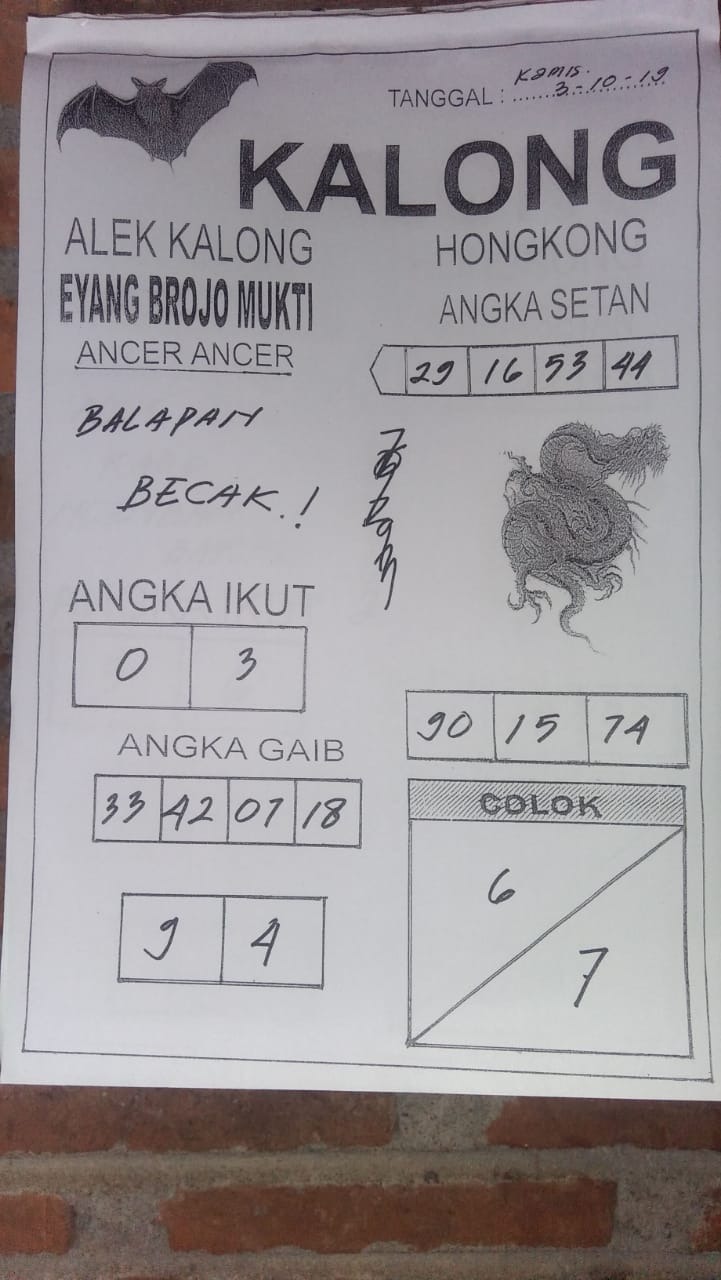 TANGGAL : Kamis. 3-10-19
KALONG
ALEK KALONG
EYANG BROJO MUKTI
ANCER ANCER
BALAPAN
BECAK.!
HONGKONG
ANGKA SETAN
29 16 53 44
ANGKA IKUT
0 3
ANGKA GAIB
33 42 07 18
9 4
90 15 74
COLOK
6
7